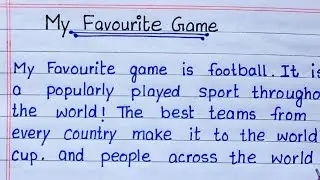 My Favourite Game
My Favourite game is football. It is
a popularly played sport throughou
the world! The best teams from
every country make it to the world
cup. and people across the world